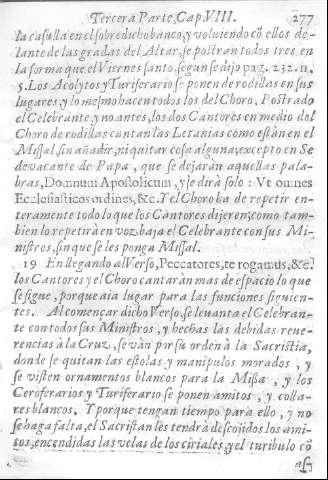 Tercera Parte, Cap. VIII. 277
la casulla en el sobredicho banco, y volviendo cõ ellos de-
lante de las gradas del Altar, se postran todos tres, en
la forma que el Viernes santo, segun se dijo pag. 232. n.
5. Los Acolytos y Turiferario se ponen de rodillas en sus
lugares, y lo mesmo hacen todos los del Choro. Postrado
el Celebrante, y no antes, los dos Cantores en medio del
Choro de rodillas cantan las Letanias como estàn en el
Missal, sin añadir, ni quitar cosa alguna, excepto en Se
devacante de Papa, que se dejaràn aquellas pala-
bras, Domnum Apostolicum, y se dirà solo: Vt omnes
Ecclesiasticos ordines, &c. Y el Choro ha de repetir en-
teramente todo lo que los Cantores dijeren; como tam-
bien lo repetirà en voz baja el Celebrante con sus Mi-
nistros, sin que se les ponga Missal.
19 En llegando al Verso, Peccatores, te rogamus, &c.
los Cantores y el Choro cantaràn mas de espacio lo que
se sigue, porque aia lugar para las funciones siguien-
tes. Al començar dicho Verso, se levanta el Celebran-
te con todos sus Ministros, y hechas las debidas reve-
rencias à la Cruz, se vàn por su orden à la Sacristia,
donde se quitan las estolas y manipulos morados, y
se visten ornamentos blancos para la Missa, y los
Ceroferarios y Turiferario se ponen amitos, y colla-
res blancos. Y porque tengan tiempo para ello, y no
se haga falta, el Sacristan les tendrà descojidos los ami-
tos, encendidas las velas de los ciriales, y el turibulo cõ